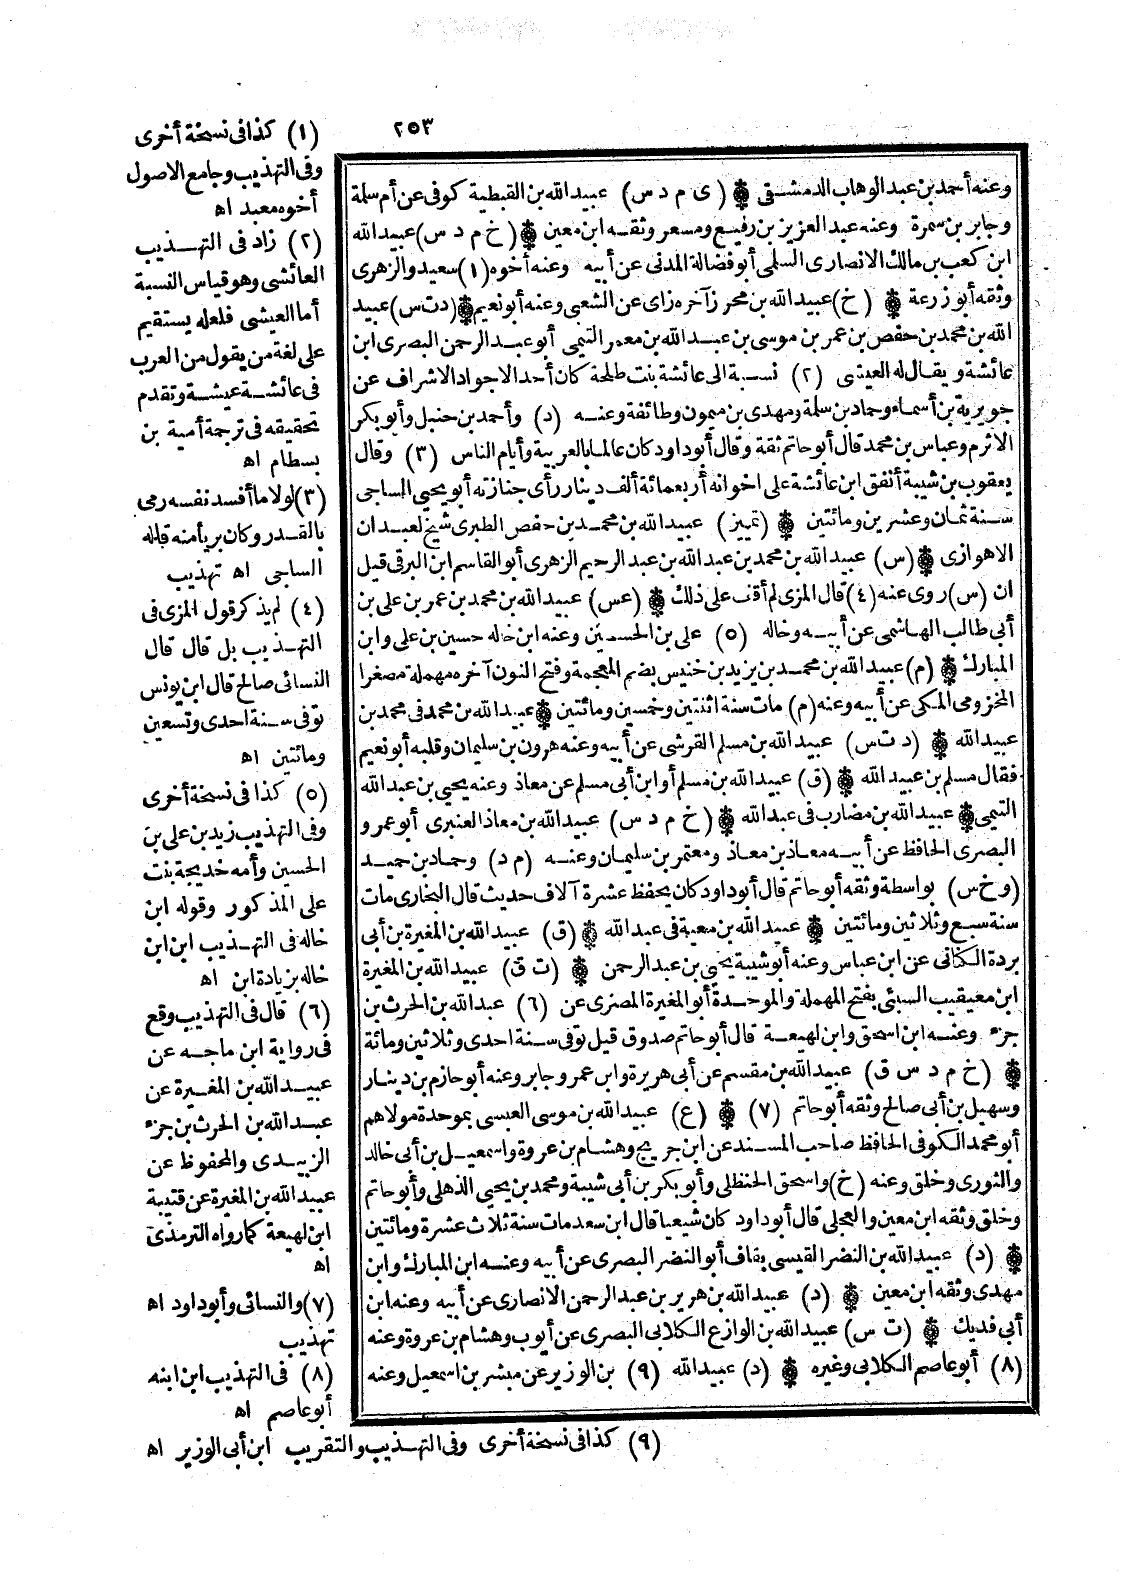 ٢٥٣
وعنه أحمد بن عبد الوهاب الدمشقى ۞ (ى م د س) عبيد الله بن القبطية كوفى عن أم سلمة
وجابر بن سمرة وعنه عبد العزيز بن رفيع ومسعر وثقه ابن معين ۞ (خ م د س) عبيد الله
ابن كعب بن مالك الانصارى السلمى أبو فضالة المدنى عن أبيه وعنه أخوه (١) سعيد والزهرى
وثقه أبو زرعة ۞ (خ) عبيد الله بن محرز آخره زاى عن الشعبى وعنه أبو نعيم ۞ (د ت س) عبيد
الله بن محمد بن حفص بن عمر بن موسى بن عبد الله بن معمر التيمى أبو عبد الرحمن البصرى ابن
عائشة ويقال له العيشى (٢) نسبة الى عائشة بنت طلحة كان أحد الاجواد الاشراف عن
جويرية بن أسماء وحماد بن سلمة ومهدى بن ميمون وطائفة وعنه (د) وأحمد بن حنبل وأبو بكر
الاثرم وعباس بن محمد قال أبو حاتم ثقة وقال أبو داود كان عالما بالعربية وأيام الناس (٣) وقال
يعقوب بن شيبة أنفق ابن عائشة على اخوانه أربعمائة ألف دينار رأى جنازته أبو يحيى الساجى
سنة ثمان وعشرين ومائتين ۞ (تمييز) عبيد الله بن محمد بن حفص الطبرى شيخ لعبدان
الاهوازى ۞ (س) عبيد الله بن محمد بن عبد الله بن عبد الرحيم الزهرى أبو القاسم ابن البرقى قيل
ان (س) روى عنه (٤) قال المزى لم أقف على ذلك ۞ (عس) عبيد الله بن محمد بن عمر بن على بن
أبى طالب الهاشمى عن أبيه وخاله (٥) على بن الحسين وعنه ابن خاله حسين بن على وابن
المبارك ۞ (م) عبيد الله بن محمد بن يزيد بن خنيس بضم المعجمة وفتح النون آخره مهملة مصغرا
المخزومى المكى عن أبيه وعنه (م) مات سنة اثنتين وخمسين ومائتين ۞ عبيد الله بن محمد فى محمد بن
عبيد الله ۞ (د ت س) عبيد الله بن مسلم القرشى عن أبيه وعنه هرون بن سليمان وقلبه أبو نعيم
فقال مسلم بن عبيد الله ۞ (ق) عبيد الله بن مسلم أو ابن أبى مسلم عن معاذ وعنه يحيى بن عبد الله
التيمى ۞ عبيد الله بن مضارب فى عبد الله ۞ (خ م د س) عبيد الله بن معاذ العنبرى أبو عمرو
البصرى الحافظ عن أبيه معاذ بن معاذ ومعتمر بن سليمان وعنه (م د) وحماد بن حميد
(و خ س) بواسطة وثقه أبو حاتم قال أبو داود كان يحفظ عشرة آلاف حديث قال البخارى مات
سنة سبع وثلاثين ومائتين ۞ عبيد الله بن معية فى عبد الله ۞ (ق) عبيد الله بن المغيرة بن أبى
بردة الكنانى عن ابن عباس وعنه أبو شيبة يحيى بن عبد الرحمن ۞ (ت ق) عبيد الله بن المغيرة
ابن معيقيب السبئى بفتح المهملة والموحدة أبو المغيرة المصرى عن (٦) عبد الله بن الحرث بن
جزء وعنه ابن اسحق وابن لهيعة قال أبو حاتم صدوق قيل توفى سنة احدى وثلاثين ومائة
۞ (خ م د س ق) عبيد الله بن مقسم عن أبى هريرة وابن عمر وجابر وعنه أبو حازم بن دينار
وسهيل بن أبى صالح وثقه أبو حاتم (٧) ۞ (ع) عبيد الله بن موسى العبسى بموحدة مولاهم
أبو محمد الكوفى الحافظ صاحب المسند عن ابن جريج وهشام بن عروة واسمعيل بن أبى خالد
والثورى وخلق وعنه (خ) واسحق الحنظلى وأبو بكر بن أبى شيبة ومحمد بن يحيى الذهلى وأبو حاتم
وخلق وثقه ابن معين والعجلى قال أبو داود كان شيعيا قال ابن سعد مات سنة ثلاث عشرة ومائتين
۞ (د) عبيد الله بن النضر القيسى بقاف أبو النضر البصرى عن أبيه وعنه ابن المبارك وابن
مهدى وثقه ابن معين ۞ (د) عبيد الله بن هرير بن عبد الرحمن الانصارى عن أبيه وعنه ابن
أبى فديك ۞ (ت س) عبيد الله بن الوازع الكلابى البصرى عن أيوب وهشام بن عروة وعنه
(٨) أبو عاصم الكلابى وغيره ۞ (د) عبيد الله (٩) بن الوزير عن مبشر بن اسمعيل وعنه
(١) كذا فى نسخة أخرى
وفى التهذيب وجامع الاصول
أخوه معبد اه
(٢) زاد فى التهذيب
العائشى وهو قياس النسبة
أما العيشى فلعله يستقيم
على لغة من يقول من العرب
فى عائشة عيشة وتقدم
تحقيقه فى ترجمة أمية بن
بسطام اه
(٣) لولا ما أفسد نفسه رمى
بالقدر وكان بريأ منه قاله
الساجى اه تهذيب
(٤) لم يذكر قول المزى فى
التهذيب بل قال قال
النسائى صالح قال ابن يونس
توفى سنة احدى وتسعين
ومائتين اه
(٥) كذا فى نسخة أخرى
وفى التهذيب زيد بن على بن
الحسين وأمه خديجة بنت
على المذكور وقوله ابن
خاله فى التهذيب ابن ابن
خاله بزيادة ابن اه
(٦) قال فى التهذيب وقع
فى رواية ابن ماجه عن
عبيد الله بن المغيرة عن
عبد الله بن الحرث بن جزء
الزبيدى والمحفوظ عن
عبيد الله بن المغيرة عن قتيبة
ابن لهيعة كما رواه الترمذى
اه
(٧) والنسائى وأبو داود اه
تهذيب
(٨) فى التهذيب ابن ابنه
أبو عاصم اه
(٩) كذا فى نسخة أخرى وفى التهذيب والتقريب ابن أبى الوزير اه